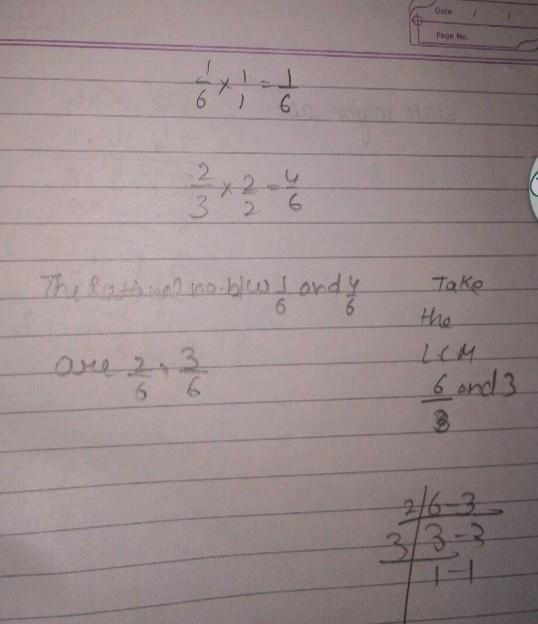 Date / /
Page No.
1/6 × 1/1 = 1/6
2/3 × 2/2 = 4/6
The Rational no. b/w 1/6 and 4/6
are 2/6, 3/6
Take
the
LCM
6 and 3
2 | 6 - 3
3 | 3 - 3
1 - 1